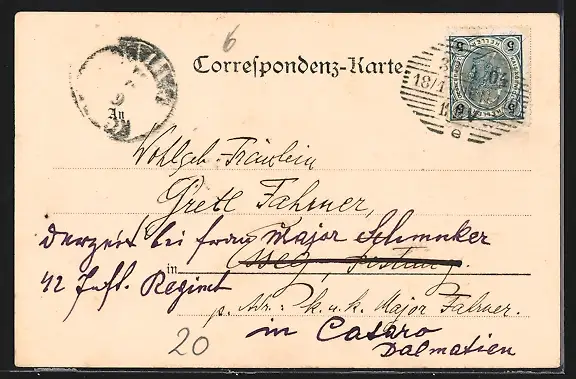 6
Correspondenz-Karte
5 HELLER 5
18/1
e
An
Wohlgeb. Fräulein
Gretl Fahrner,
derzeit bei Frau Major Schmuker
in
42 Inft. Regimt
p. Adr.: k. u. k. Major Fahrner.
in Cataro
Dalmatien
20